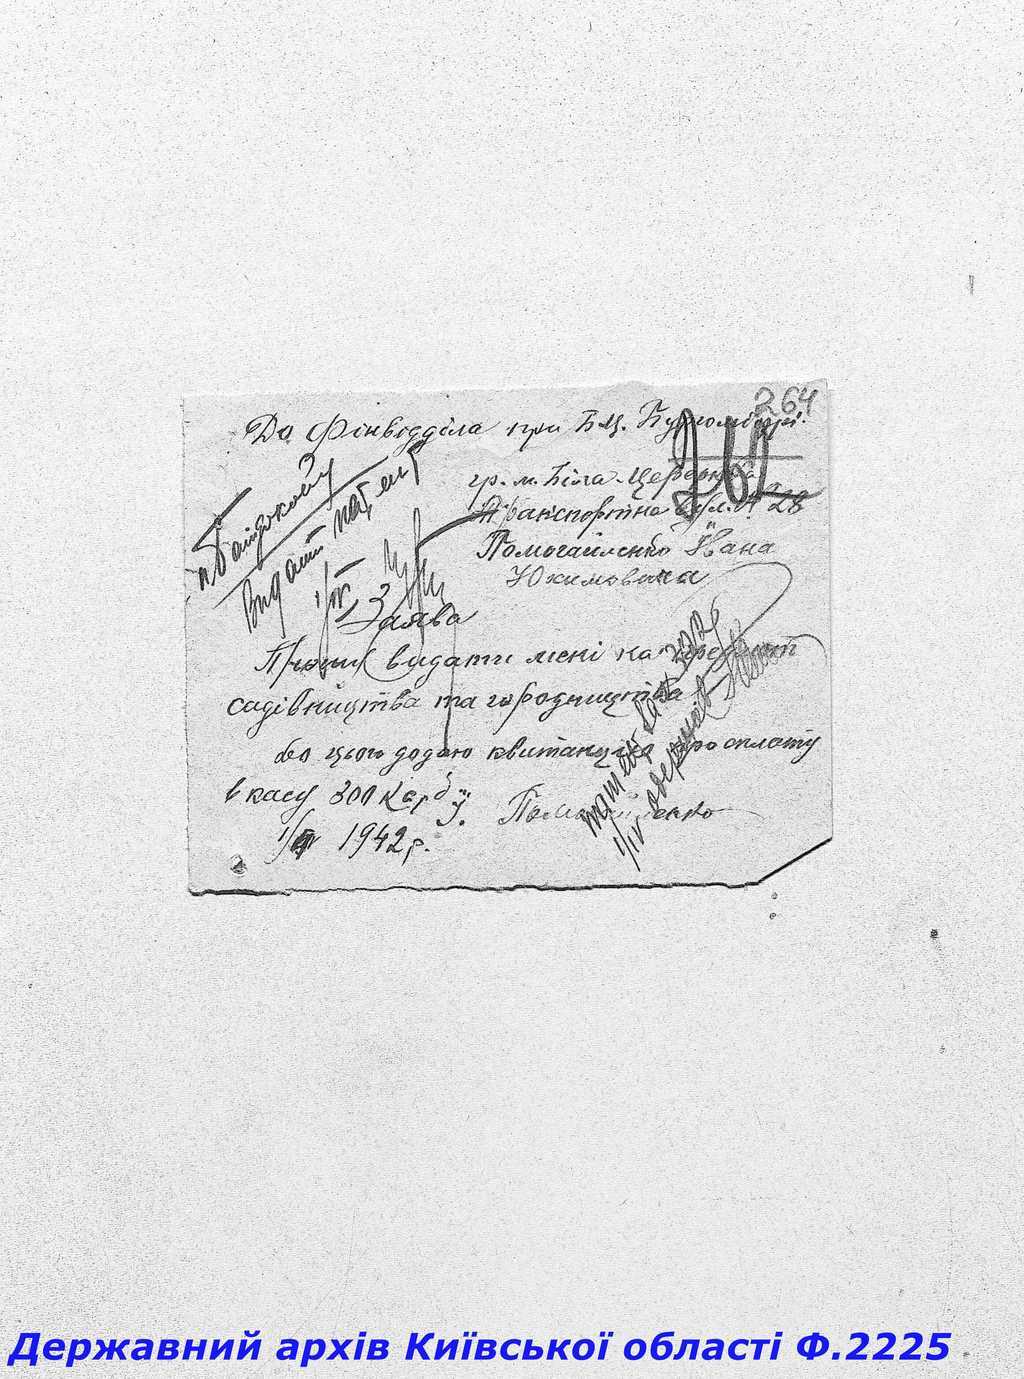 264
До Фінвідділа при Б.Ц. Бургомістрі.
262
гр. м. Біла-Церква
Транспортна вул. № 28
Помогайленко Івана
Юхимовича
Видати патент
1/IV
Заява
Прошу видати мені на
садівництва та городництва
до цього додаю квитанцію про сплату
в касу 300 Карб
1/IV 1942 р.
Помогайленко
патент
1/IV одержав
Державний архів Київської області Ф.2225